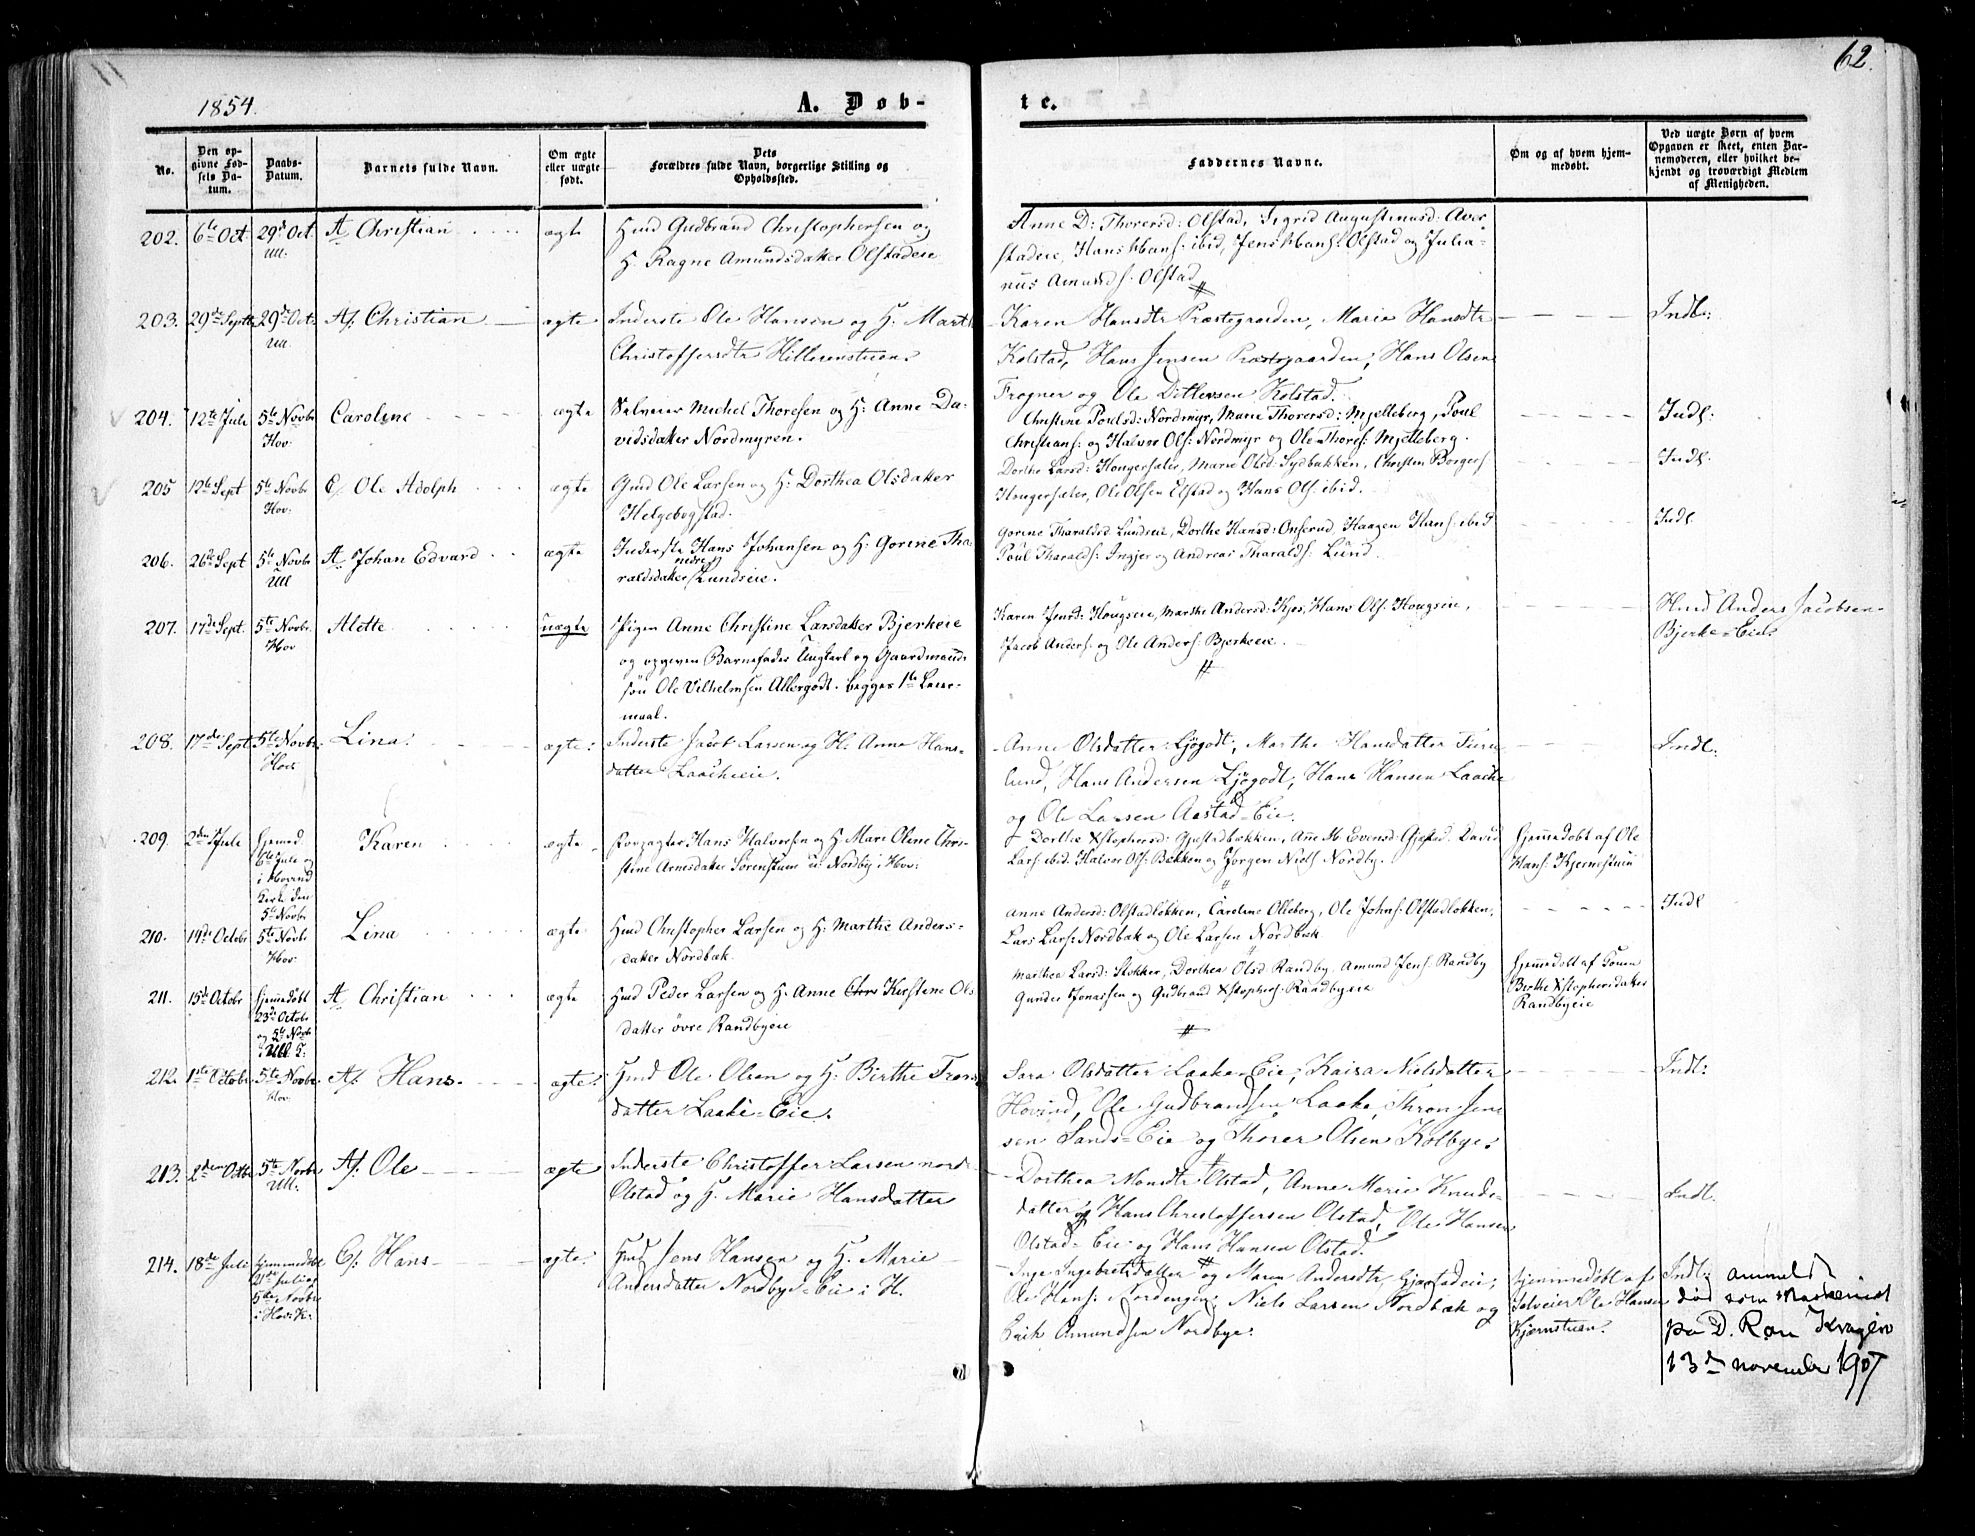 62.
1854.
A. Døb-
te.
No.
Den op-
givne Fød-
sels Da-
tum.
Daabs-
Datum.
Barnets fulde Navn.
Om ægte
eller uægte
født.
Dets
Forældres fulde Navn, borgerlige Stilling og
Opholdssted.
Faddernes Navne.
Om og af hvem hjem-
medøbt.
Ved uægte Børn af hvem
Opgaven er skeet, enten Bar-
nemoderen, eller hvilket be-
kjendt og troværdigt Medlem
af Menigheden.
202.
6te Oct.
29de Oct.
Ull.
A Christian
ægte
Hmd Gudbrand Christophersen og
H. Ragne Amundsdatter Olstadeie
Anne D: Thorersd: Olstad, Sigrid Augustinusd: Aver
stadeie, Hans Hans: ibid, Jens Hans: Olstad og Julia-
nus Amunds: Olstad
203.
29de Septbr
29de Oct.
Ull.
A/ Christian
ægte
Inderste Ole Hansen og H. Marth
Christoffersdtr Hillerenstuen.
Karen Hansdtr Præstegaarden, Marie Hansdtr
Kolstad, Hans Jensen Præstegaarden, Hans Olsen
Frogner og Ole Ditlevsen Kolstad.
Indb:
204.
12te Juli
5te Novbr
Hov:
Caroline
ægte
Selveier Michel Thoresen og H: Anne Da-
vidsdatter Nordmyren.
Christine Poulsd: Nordmyr, Marie Thorersd: Mjelleberg, Poul
Christians: og Halvor Ols: Nordmyr og Ole Thores: Mjelleberg.
Indl:
205
12te Sept
5te Novbr
Hov:
C/. Ole Adolph
ægte
Gmd Ole Larsen og H: Dorthea Olsdatter
Helgebogstad.
Dorthe Larsd: Hougersæter, Marie Olsd: Sydbakken, Christen Borgers
Hougersæter, Ole Olsen Elstad og Hans Ols: ibid.
Indl.
206.
26de Sept
5te Novbr
Ull
A Johan Edvard
ægte
Inderste Hans Johansen og H: Gorine Tha-
raldsdatter nedre Lundseie.
Gorine Tharaldsd Lundeie, Dorthe Hansd: Onsrud Haagen Hans: ibid
Poul Tharalds: Ingjer og Andreas Tharalds: Lund.
Indl
207.
17de Sept.
5te Novbr.
Hov
Alette
uægte
Pigen Anne Christine Larsdatter Bjerkeie
og opgiven Barnefader Ungkarl og Gaardmands
søn Ole Vilhelmsen Allergodt. begges 1te Leier-
maal.
Karen Jensd: Hougseie, Marthe Andersd: Kjos, Hans Ols: Hougseie,
Jacob Anders: og Ole Anders: Bjerkeeie.
Hmd Anders Jacobsen
Bjerke-Eiet
208.
17de Sept
5te Novbr:
Hov:
Lina:
ægte:
Inderste Jacob Larsen og H. Anne Hans-
datter Laacheeie.
Anne Olsdatter Ljøgodt, Marthe Hansdatter Furu
lund, Hans Andersen Ljøgodt, Hans Hansen Laache
og Ole Larsen Aastad-Eie.
Indl:
209.
2den Juli
Hjemmed
6te Jule og
i Hovind
Kirke den
5te Novbr
Karen
ægte.
Forpagter Hans Halvorsen og H. Mari Oline Chri-
stine Arnesdatter Sörenstuen u: Nordby i Hov:
Dorthe Xstophersd: Gjestadbækken, Ane M. Evensd: Gjestad. David
Lars: ibid. Halvor Ols: Bakken og Jørgen Niels: Nordby.
Hjemmedøbt af Ole
Hans: Kjernestuen
210.
14de Octobr
5te Novbr
Hov:
Lina
ægte
Hmd Christopher Larsen og H: Marthe Anders-
datter Nordbæk.
Anne Andersd: Olstadløkken, Caroline Olleberg, Ole Johns: Olstadløkken,
Lars Lars: Nordbæk og Ole Larsen Nordbæk
Indl
211.
15de Octobr
Hjemmedøbt
23de Octobr
og 5te Novbr
i Ull. K:
A. Christian
ægte
Hmd Peder Larsen og H: Anne Chri Kirstine Ols
datter øvre Randbyeie
Marthea Larsd: Stokker, Dorthea Olsd Randby, Amund Jens: Randby
Gunder Jonassen og Gudbrand Xstophers: Randbyeie
Hjemmedøbt af Konen
Berthe Xstophersdatter
Randbyeie
212.
1ste Octobr.
5te Novbr.
Hov:
A/: Hans.
ægte:
Hmd Ole Olsen og H: Birthe Trons
datter Laake-Eie.
Sara Olsdatter Laake-Eie, Kaisa Nielsdatter
Hovind, Ole Gudbrandsen Laake, Thron Jen
sen Sands-Eie og Thorer Olsen Kolbye.
Indl:
213.
2den Octbr
5te Novbr
Ull.
A/: Ole
ægte
Inderste Christoffer Larsen nord-
Olstad og H. Marie Hansdatter
Dorthea Monsdtr Olstad, Anne Marie Knuds-
datter og Hans Christoffersen Olstad, Ole Hansen
Olstad-Eie og Hans Hansen Olstad.
Indl.
214.
18de Juli
hjemmedøbt
21de Juli og
5te Novbr
i Hov: K:
C/: Hans
ægte:
Hmd Jens Hansen og H. Marie
Andersdatter Nordbye-Eie i H.
Inge Ingebretsdatter og Maren Andersdtr, Gjestadeie;
Ole Hans: Nordengen, Niels Larsen Nordbæk og
Erik Amundsen Nordbye.
hjemmedøbt af
Selveier Ole Hansen
Kjernstuen.
Indl: anmeldt
død som Maskinist
pa D. Ran
13de november 1907